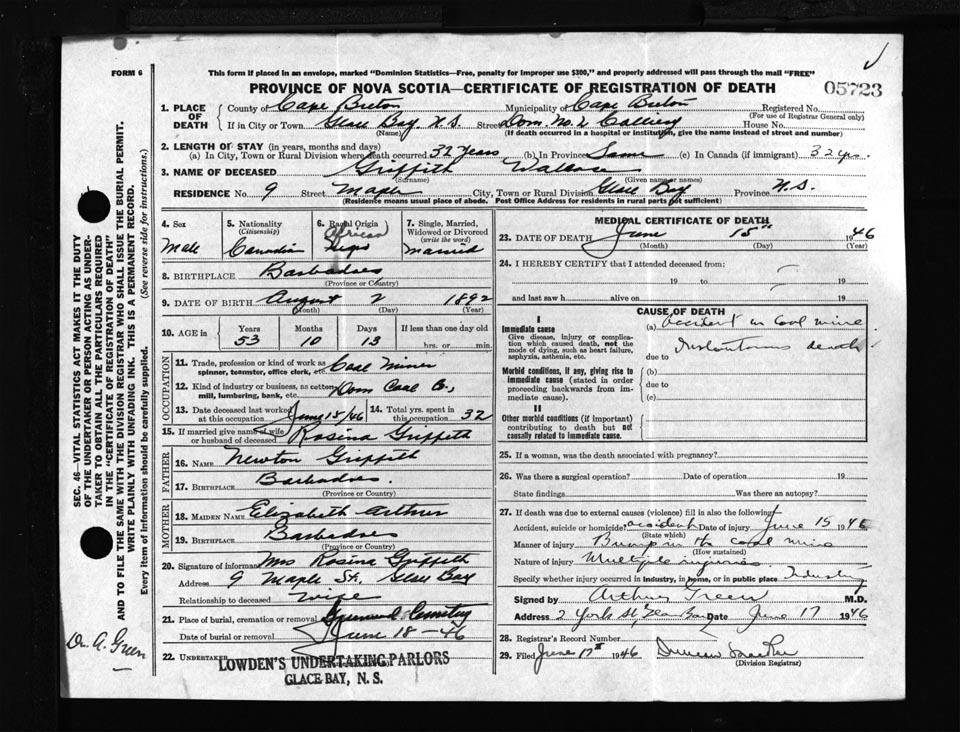 FORM 6
This form if placed in an envelope, marked "Dominion Statistics—Free, penalty for improper use $300," and properly addressed will pass through the mail "FREE"
PROVINCE OF NOVA SCOTIA—CERTIFICATE OF REGISTRATION OF DEATH
05723
1. PLACE OF DEATH County of Cape Breton Municipality of Cape Breton Registered No.
(For use of Registrar General only)
If in City or Town Glace Bay N.S. Street Dom. No. 2 Colliery House No.
(Name) (If death occurred in a hospital or institution, give the name instead of street and number)
2. LENGTH OF STAY (in years, months and days)
(a) In City, Town or Rural Division where death occurred 32 years (b) In Province Same (c) In Canada (if immigrant) 32 yrs.
3. NAME OF DECEASED Griffith Wallace
(Surname) (Given name or names)
RESIDENCE No. 9 Street Maple City, Town or Rural Division Glace Bay Province N.S.
(Residence means usual place of abode. Post Office Address for residents in rural parts not sufficient)
4. Sex 5. Nationality (Citizenship) 6. Racial Origin 7. Single, Married, Widowed or Divorced (write the word)
African
Male Canadian Negro married
8. BIRTHPLACE Barbadoes
(Province or Country)
9. DATE OF BIRTH August 2 1892
(Month) (Day) (Year)
10. AGE in Years Months Days If less than one day old
53 10 13 hrs. or min.
OCCUPATION
11. Trade, profession or kind of work as spinner, teamster, office clerk, etc. Coal Miner
12. Kind of industry or business, as cotton mill, lumbering, bank, etc. Dom Coal Co.,
13. Date deceased last worked at this occupation June 15/46 14. Total yrs. spent in this occupation 32
15. If married give name of wife or husband of deceased Rosina Griffith
FATHER
16. NAME Newton Griffith
17. BIRTHPLACE Barbadoes.
(Province or Country)
MOTHER
18. MAIDEN NAME Elizabeth Arthur
19. BIRTHPLACE Barbadoes
(Province or Country)
20. Signature of informant Mrs Rosina Griffith
Address 9 Maple St. Glace Bay
Relationship to deceased wife
21. Place of burial, cremation or removal Greenwood Cemetery
Date of burial or removal June 18-46
22. UNDERTAKER LOWDEN'S UNDERTAKING PARLORS
GLACE BAY, N. S.
MEDICAL CERTIFICATE OF DEATH
23. DATE OF DEATH June 15th 1946
(Month) (Day) (Year)
24. I HEREBY CERTIFY that I attended deceased from:
19 to 19
and last saw h alive on 19
CAUSE OF DEATH
I
Immediate cause
Give disease, injury or complication which caused death, not the mode of dying, such as heart failure, asphyxia, asthenia, etc.
(a) accident in coal mine
Instantaneous death
due to
Morbid conditions, if any, giving rise to immediate cause (stated in order proceeding backwards from immediate cause).
(b)
due to
(c)
II
Other morbid conditions (if important) contributing to death but not causally related to immediate cause.
25. If a woman, was the death associated with pregnancy?
26. Was there a surgical operation? Date of operation 19
State findings Was there an autopsy?
27. If death was due to external causes (violence) fill in also the following:
Accident, suicide or homicide? accident Date of injury June 15 1946
(State which)
Manner of injury Bump in the coal mine
(How sustained)
Nature of injury Multiple injuries
Specify whether injury occurred in industry, in home, or in public place Industry
Signed by Arthur Green M.D.
Address 2 York St, Glace Bay Date June 17 1946
28. Registrar's Record Number
29. Filed June 17th 1946
(Division Registrar)
SEC. 46—VITAL STATISTICS ACT MAKES IT THE DUTY
OF THE UNDERTAKER OR PERSON ACTING AS UNDERTAKER
TO OBTAIN ALL THE PARTICULARS REQUIRED
IN THE "CERTIFICATE OF REGISTRATION OF DEATH"
AND TO FILE THE SAME WITH THE DIVISION REGISTRAR WHO SHALL ISSUE THE BURIAL PERMIT.
WRITE PLAINLY WITH UNFADING INK. THIS IS A PERMANENT RECORD.
Every item of information should be carefully supplied. (See reverse side for instructions.)
Dr. A. Green